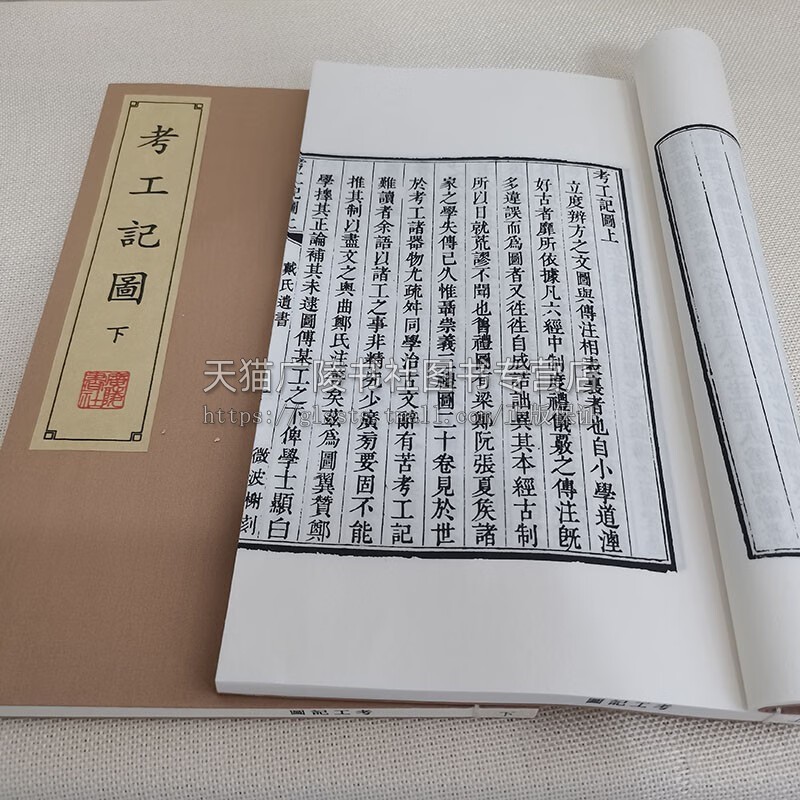 考工記圖
下
廣陵書社
考工記圖上
立度辨方之文圖與傳注相表裏者也自小學道湮
好古者靡所依據凡六經中制度禮儀覈之傳注旣
多違誤而爲圖者又往往自成詰詘異其本經古制
所以日就荒謬不聞也舊禮圖有梁鄭阮張夏矦諸
家之學失傳已久惟聶崇義三禮圖二十卷見於世
於考工諸器物尤疏舛同學治古文辭有苦考工記
難讀者余語以諸工之事非精究少廣旁要固不能
推其制以盡文之奧曲鄭氏注善矣茲爲圖翼贊鄭
學擇其正論補其未逮圖傅某工之下俾學士顯白
戴氏遺書
微波榭刻
天猫广陵书社图书专营店
正版保证
考工記圖
下
考工記圖